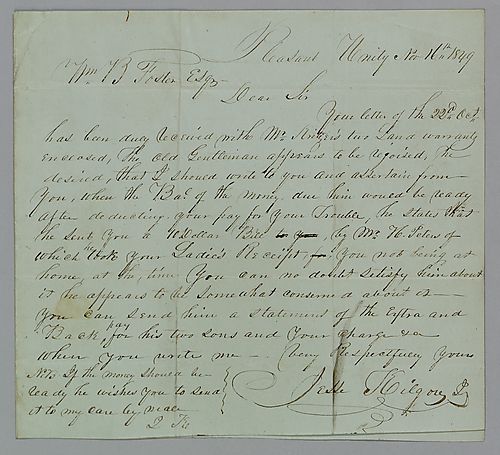 Pleasant Unity Nov 16th 1849
Wm B Foster Esqr
Dear Sir
Your letter of the 22d Oct
has been duly received with Mr. two Land warrants
enclosed, The old Gentleman appears to be rejoised, he
desired, that I should write to you and assertain from
You, when the Bal of the money due him would be ready
after deducting your pay for Your Trouble, he states that
he sent You a Dollar Bill to you, by Mr. H. Peters of
which he took Your Ladie's Receipt for You not being at
home, at the time You can no doubt Satisfy him about
it he appears to be Somewhat consurnd about it
You can send him a statement of the Extra and
Back pay for his two sons and Your charge &c
When you write me - Very Respectfully Yours
NB If the money should be
ready he wishes You to Send
it to my care by mail
J K
Jesse Kilgore